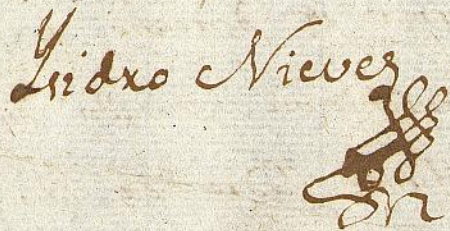 Ysidro Nieves